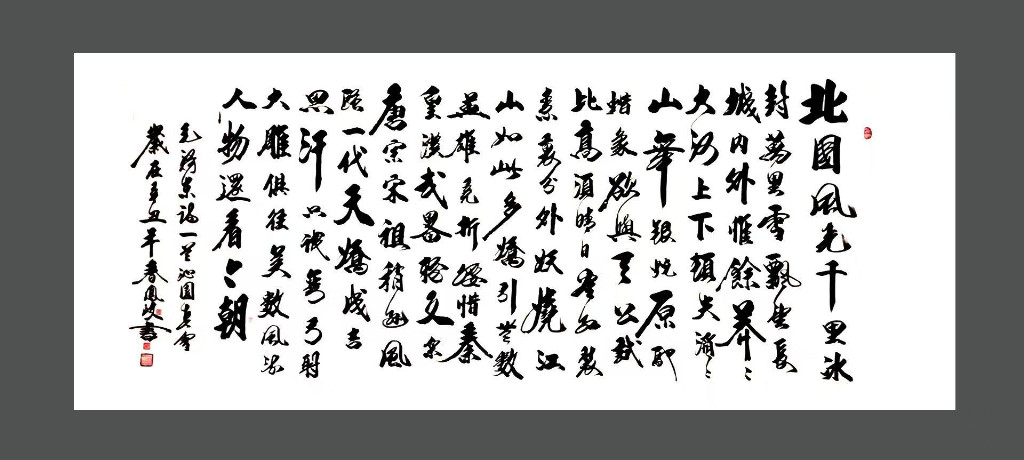 北國風光千里冰
封萬里雪飄望長
城内外惟餘莽々
大河上下頓失滔々
山舞銀蛇原馳
蜡象欲與天公試
比高須晴日看紅裝
素裹分外妖嬈江
山如此多嬌引無數
英雄競折腰惜秦
皇漢武略輸文采
唐宗宋祖稍遜風
騷一代天驕成吉
思汗只識彎弓射
大雕俱往矣數風流
人物還看今朝
毛澤東詞一首沁園春雪
歲在辛丑年春鳳岐書